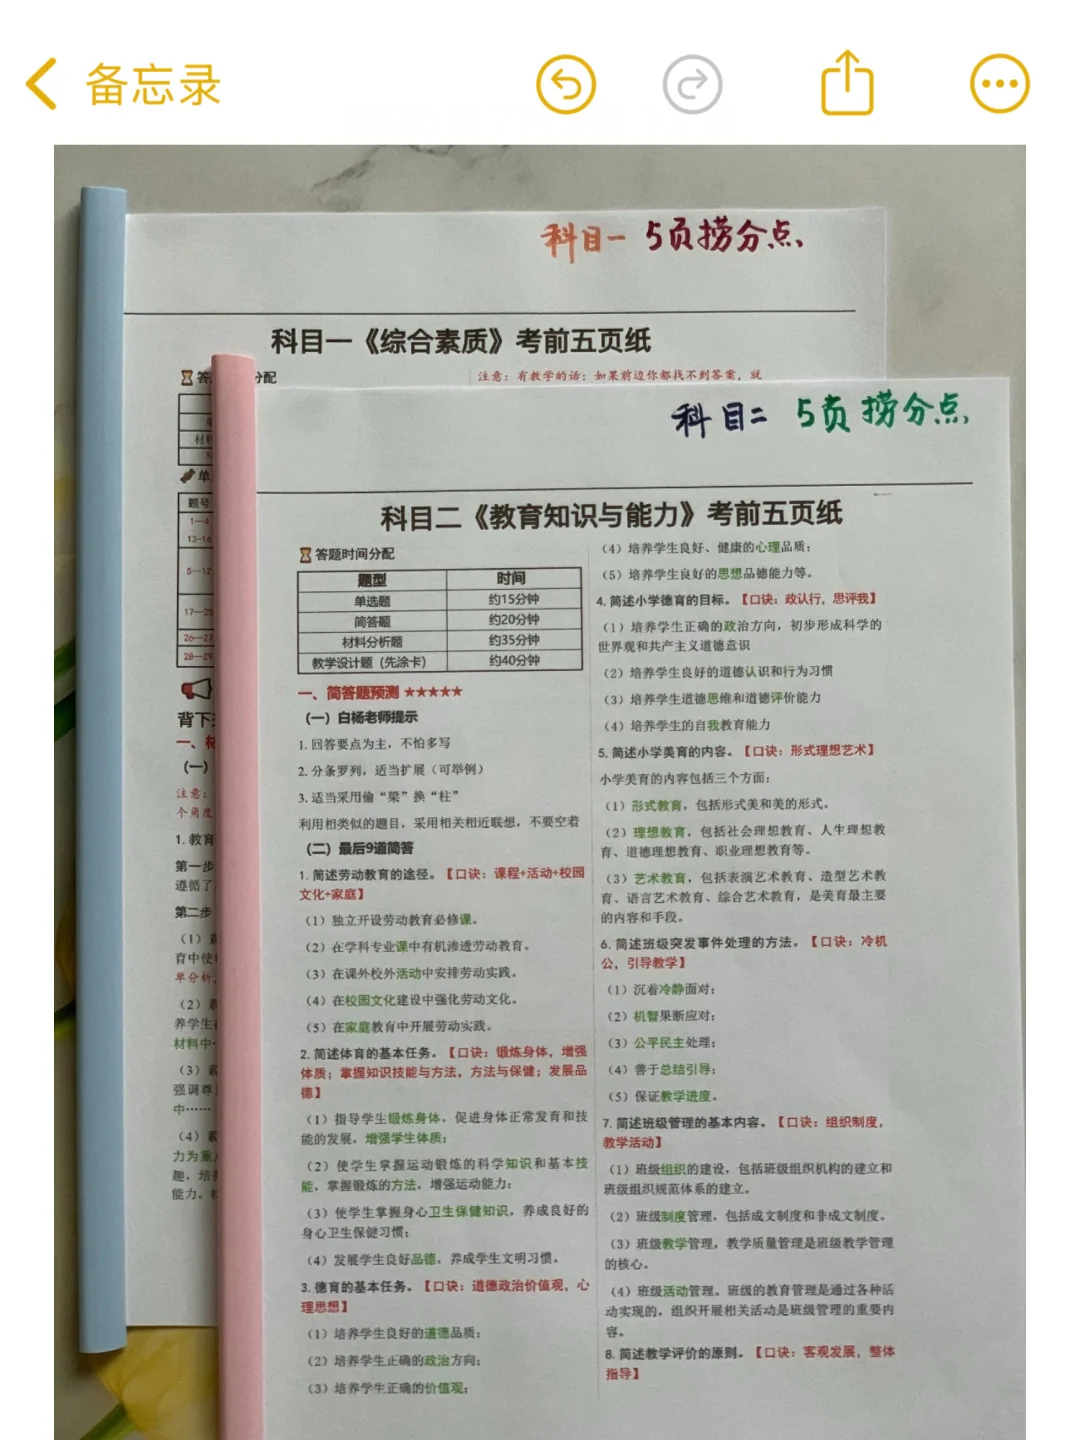 备忘录
科目一 5页捞分点
科目一《综合素质》考前五页纸
分配
注意：有教学的话：如果前边你都找不到答案，就
单
题号
1—4
13-16
5—12
17—25
26—27
28—29
背下
(一)
注意：
个角度
1. 教育
第一步
遵循了
第二步
(1)
育中使
单分析,
(2)
养学生
材料中
(3)
强调尊
中……
(4)
力为重
趣，培
能力。
科目二 5页捞分点
科目二《教育知识与能力》考前五页纸
答题时间分配
题型 时间
单选题 约15分钟
简答题 约20分钟
材料分析题 约35分钟
教学设计题（先涂卡） 约40分钟
一、简答题预测 ★★★★★
（一）白杨老师提示
1. 回答要点为主，不怕多写
2. 分条罗列，适当扩展（可举例）
3. 适当采用偷“梁”换“柱”
利用相类似的题目，采用相关相近联想，不要空着
（二）最后9道简答
1. 简述劳动教育的途径。【口诀：课程+活动+校园
文化+家庭】
（1）独立开设劳动教育必修课。
（2）在学科专业课中有机渗透劳动教育。
（3）在课外校外活动中安排劳动实践。
（4）在校园文化建设中强化劳动文化。
（5）在家庭教育中开展劳动实践。
2. 简述体育的基本任务。【口诀：锻炼身体，增强
体质；掌握知识技能与方法，方法与保健；发展品
德】
（1）指导学生锻炼身体，促进身体正常发育和技
能的发展，增强学生体质；
（2）使学生掌握运动锻炼的科学知识和基本技
能，掌握锻炼的方法，增强运动能力；
（3）使学生掌握身心卫生保健知识，养成良好的
身心卫生保健习惯；
（4）发展学生良好品德，养成学生文明习惯。
3. 德育的基本任务。【口诀：道德政治价值观，心
理思想】
（1）培养学生良好的道德品质；
（2）培养学生正确的政治方向；
（3）培养学生正确的价值观；
（4）培养学生良好、健康的心理品质；
（5）培养学生良好的思想品德能力等。
4. 简述小学德育的目标。【口诀：政认行，思评我】
（1）培养学生正确的政治方向，初步形成科学的
世界观和共产主义道德意识
（2）培养学生良好的道德认识和行为习惯
（3）培养学生道德思维和道德评价能力
（4）培养学生的自我教育能力
5. 简述小学美育的内容。【口诀：形式理想艺术】
小学美育的内容包括三个方面：
（1）形式教育，包括形式美和美的形式。
（2）理想教育，包括社会理想教育、人生理想教
育、道德理想教育、职业理想教育等。
（3）艺术教育，包括表演艺术教育、造型艺术教
育、语言艺术教育、综合艺术教育，是美育最主要
的内容和手段。
6. 简述班级突发事件处理的方法。【口诀：冷机
公，引导教学】
（1）沉着冷静面对；
（2）机智果断应对；
（3）公平民主处理；
（4）善于总结引导；
（5）保证教学进度。
7. 简述班级管理的基本内容。【口诀：组织制度，
教学活动】
（1）班级组织的建设，包括班级组织机构的建立和
班级组织规范体系的建立。
（2）班级制度管理，包括成文制度和非成文制度。
（3）班级教学管理，教学质量管理是班级教学管理
的核心。
（4）班级活动管理。班级的教育管理是通过各种活
动实现的，组织开展相关活动是班级管理的重要内
容。
8. 简述教学评价的原则。【口诀：客观发展，整体
指导】